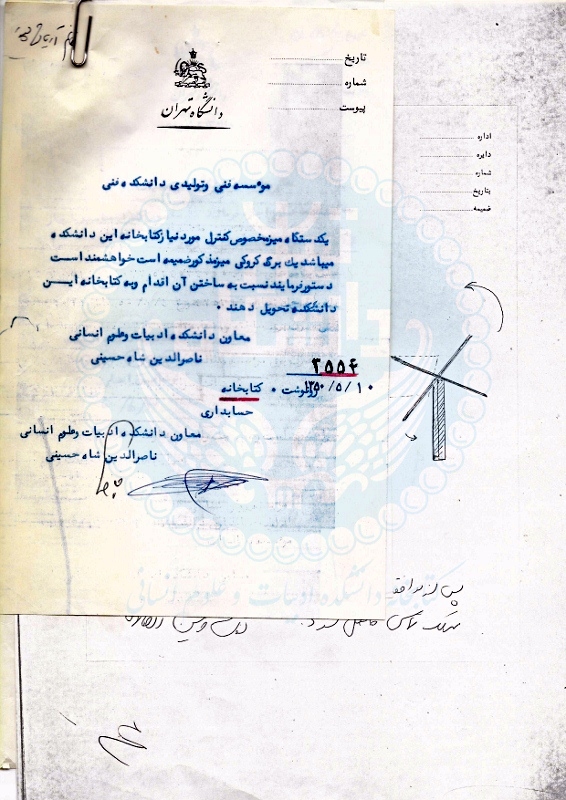 تاریخ
شماره
پیوست
دانشگاه تهران
اداره
دایره
شماره
بتاریخ
ضمیمه
موسسه فنی وتولیدی دانشکده فنی
یکدستگاه میزمخصوص کنترل مورد نیاز کتابخانه این دانشکده
میباشد یک برگ کروکی میز مذکور ضمیمه است خواهشمند است
دستورفرمایند نسبت به ساختن آن اقدام وبه کتابخانه ایــن
دانشکده تحویل دهند .
معاون دانشکده ادبیات وعلوم انسانی
ناصرالدین شاه حسینی
۳۵۵۴
۱۳۵۰/۵/۱۰
رونوشت . کتابخانه
حسابداری
معاون دانشکده ادبیات وعلوم انسانی
ناصرالدین شاه حسینی
کتابخانه دانشکده ادبیات و علوم انسانی
پس از